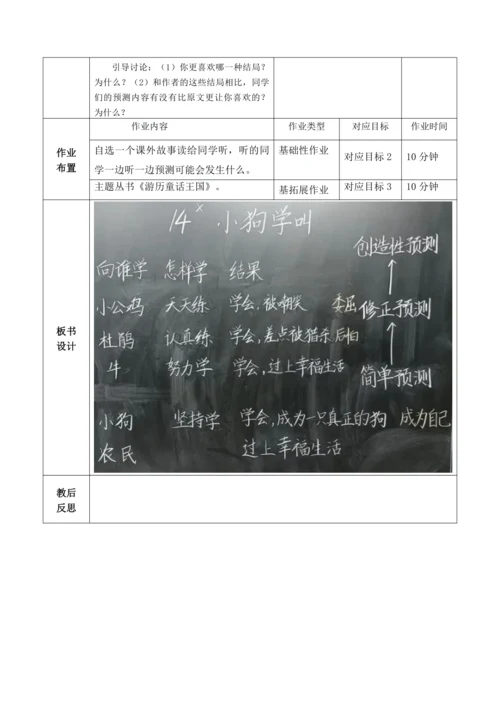 引导讨论：（1）你更喜欢哪一种结局？
为什么？（2）和作者的这些结局相比，同学
们的预测内容有没有比原文更让你喜欢的？
为什么？
作业
布置
作业内容 作业类型 对应目标 作业时间
自选一个课外故事读给同学听，听的同
学一边听一边预测可能会发生什么。
基础性作业 对应目标2 10分钟
主题丛书《游历童话王国》。 基拓展作业 对应目标3 10分钟
板书
设计
14× 小狗学叫
创造性预测
向谁学 怎样学 结果
小公鸡 天天练 学会，被嘲笑 委屈 修正预测
杜鹃 认真练 学会，差点被猎杀 后怕
牛 努力学 学会，过上幸福生活
简单预测
小狗 坚持学 学会，成为一只真正的狗 成为自己
农民 过上幸福生活
教后
反思